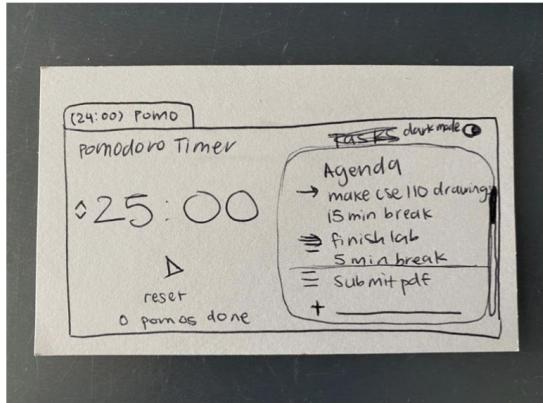 (24:00) Pomo
Pomodoro Timer
25:00
reset
0 pomos done
Tasks
dark mode
Agenda
→ make cse 110 drawings
15 min break
finish lab
5 min break
submit pdf
+